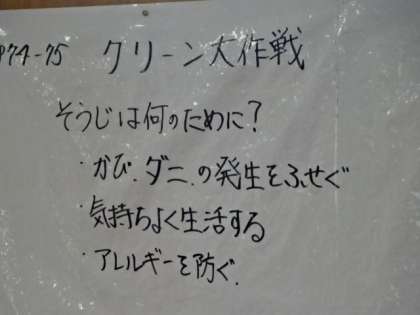 P74-75 クリーン大作戦
そうじは何のために?
・かび、ダニ、の発生をふせぐ
・気持ちよく生活する
・アレルギーを防ぐ.